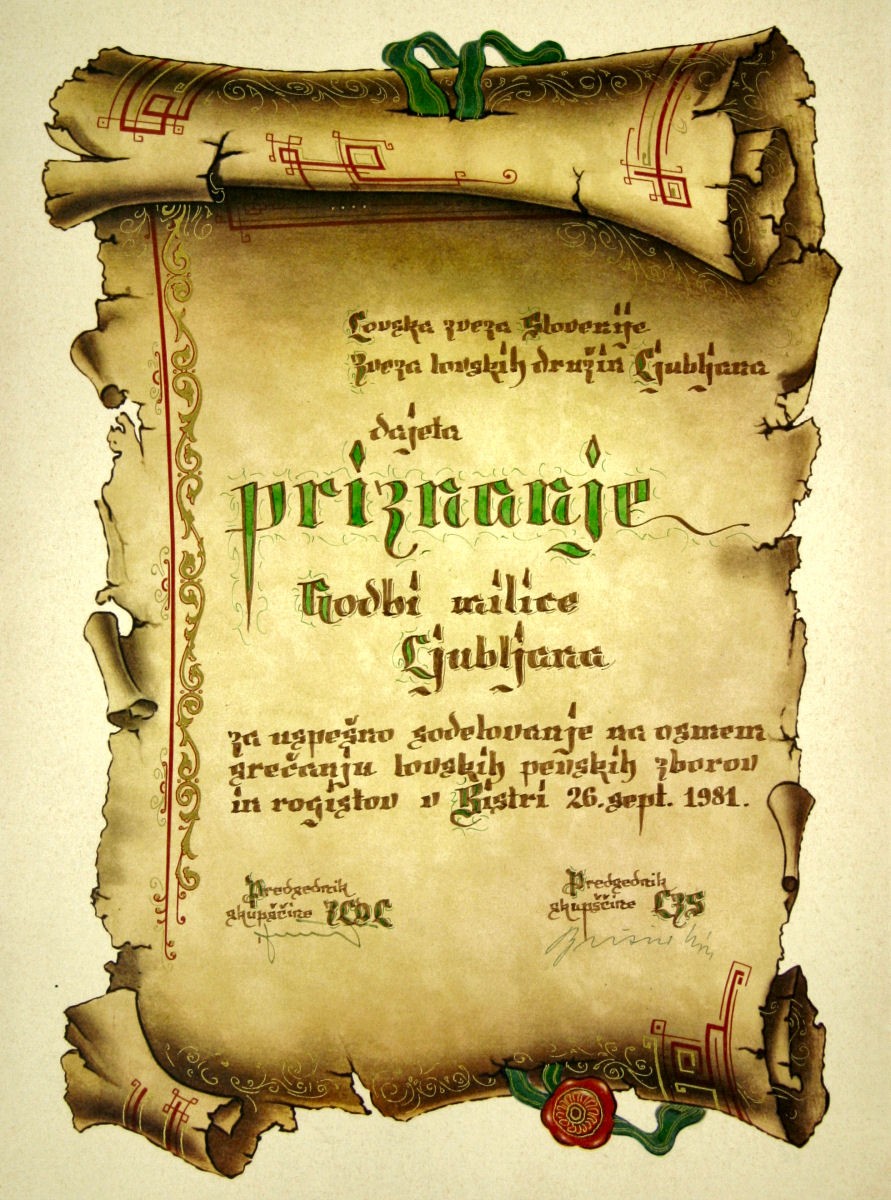 Lovska zveza Slovenije
Zveza lovskih družin Ljubljana
dajeta
priznanje
Godbi milice
Ljubljana
za uspešno sodelovanje na osmem
srečanju lovskih pevskih zborov
in rogistov v Bistri 26. sept. 1981.
Predsednik
skupščine ZLDL
Predsednik
skupščine LZS